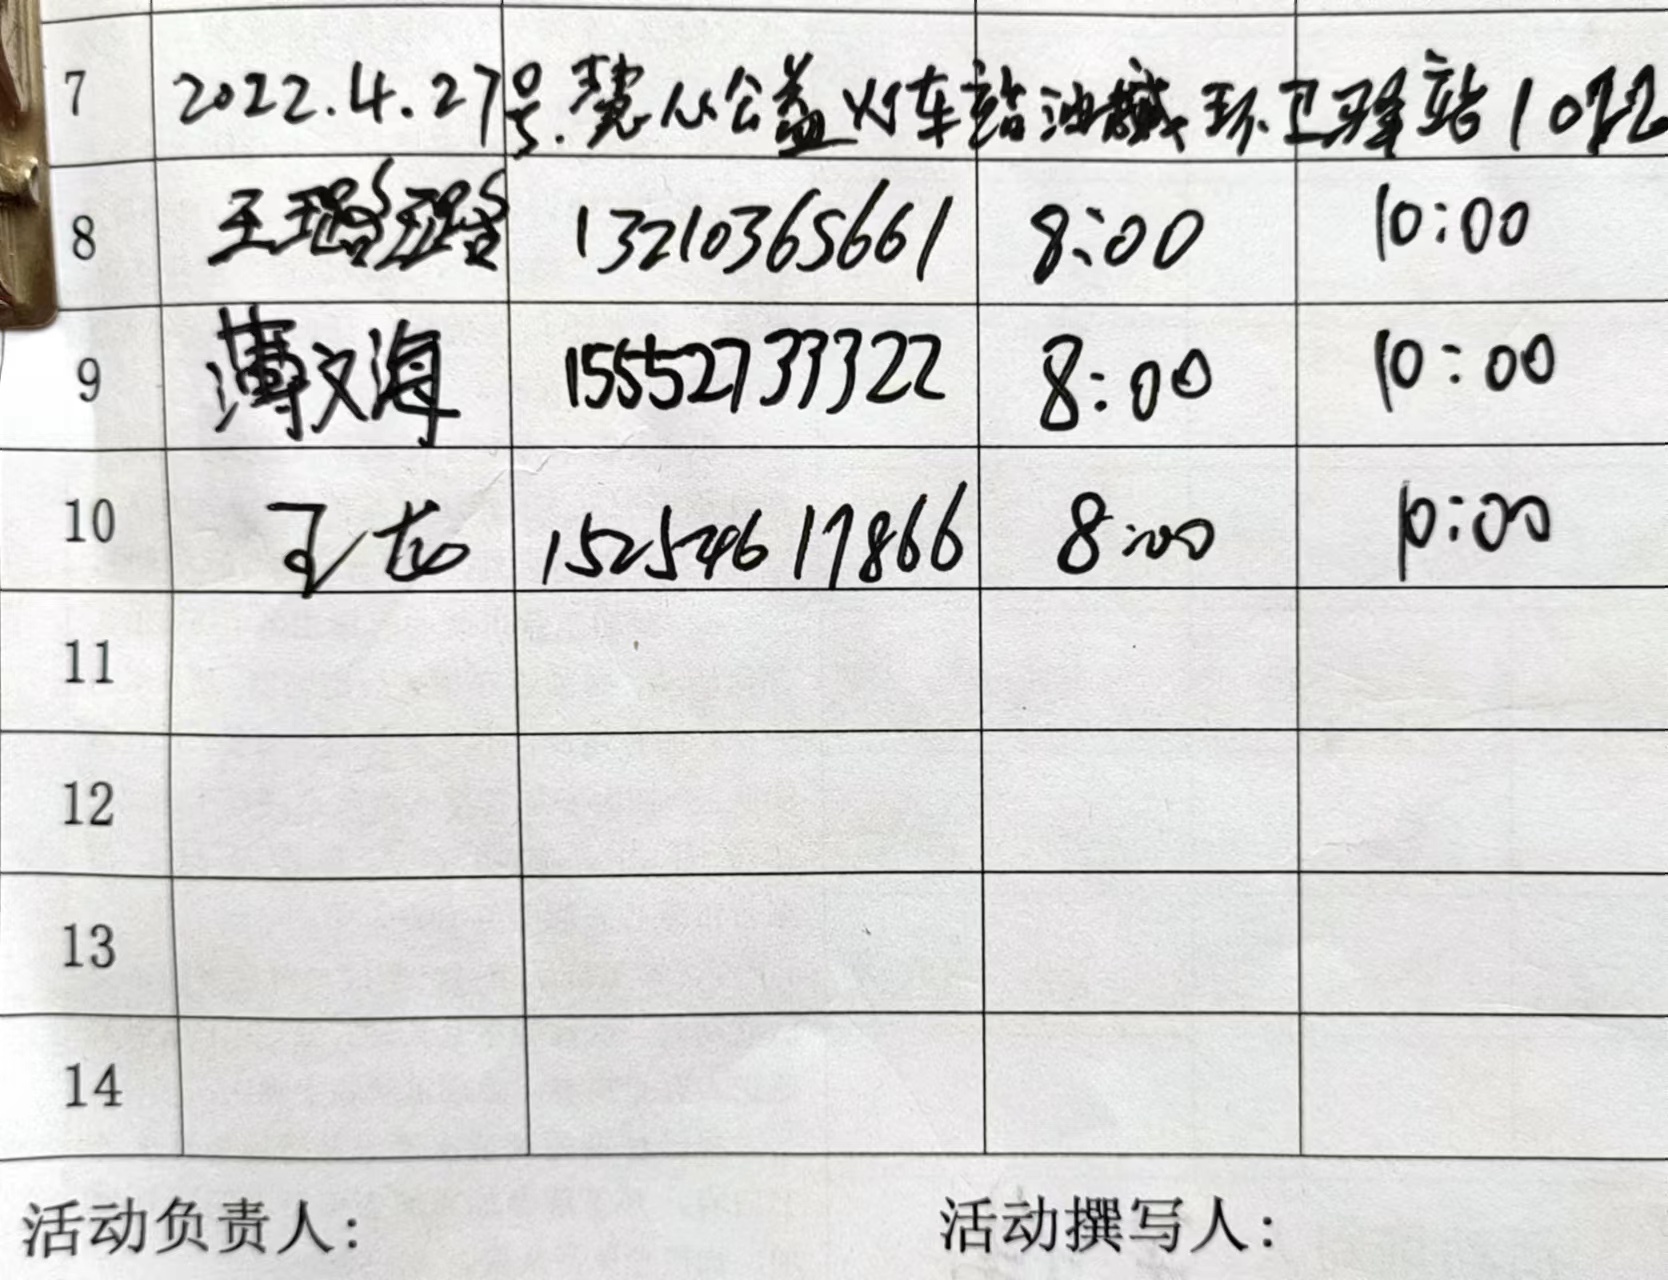 7 2022.4.27号.慧心公益火车站油城环卫驿站1022
8 王璐璐 13210365661 8:00 10:00
9 薄文海 15552733322 8:00 10:00
10 王龙 15254617866 8:00 10:00
11
12
13
14
活动负责人: 活动撰写人: